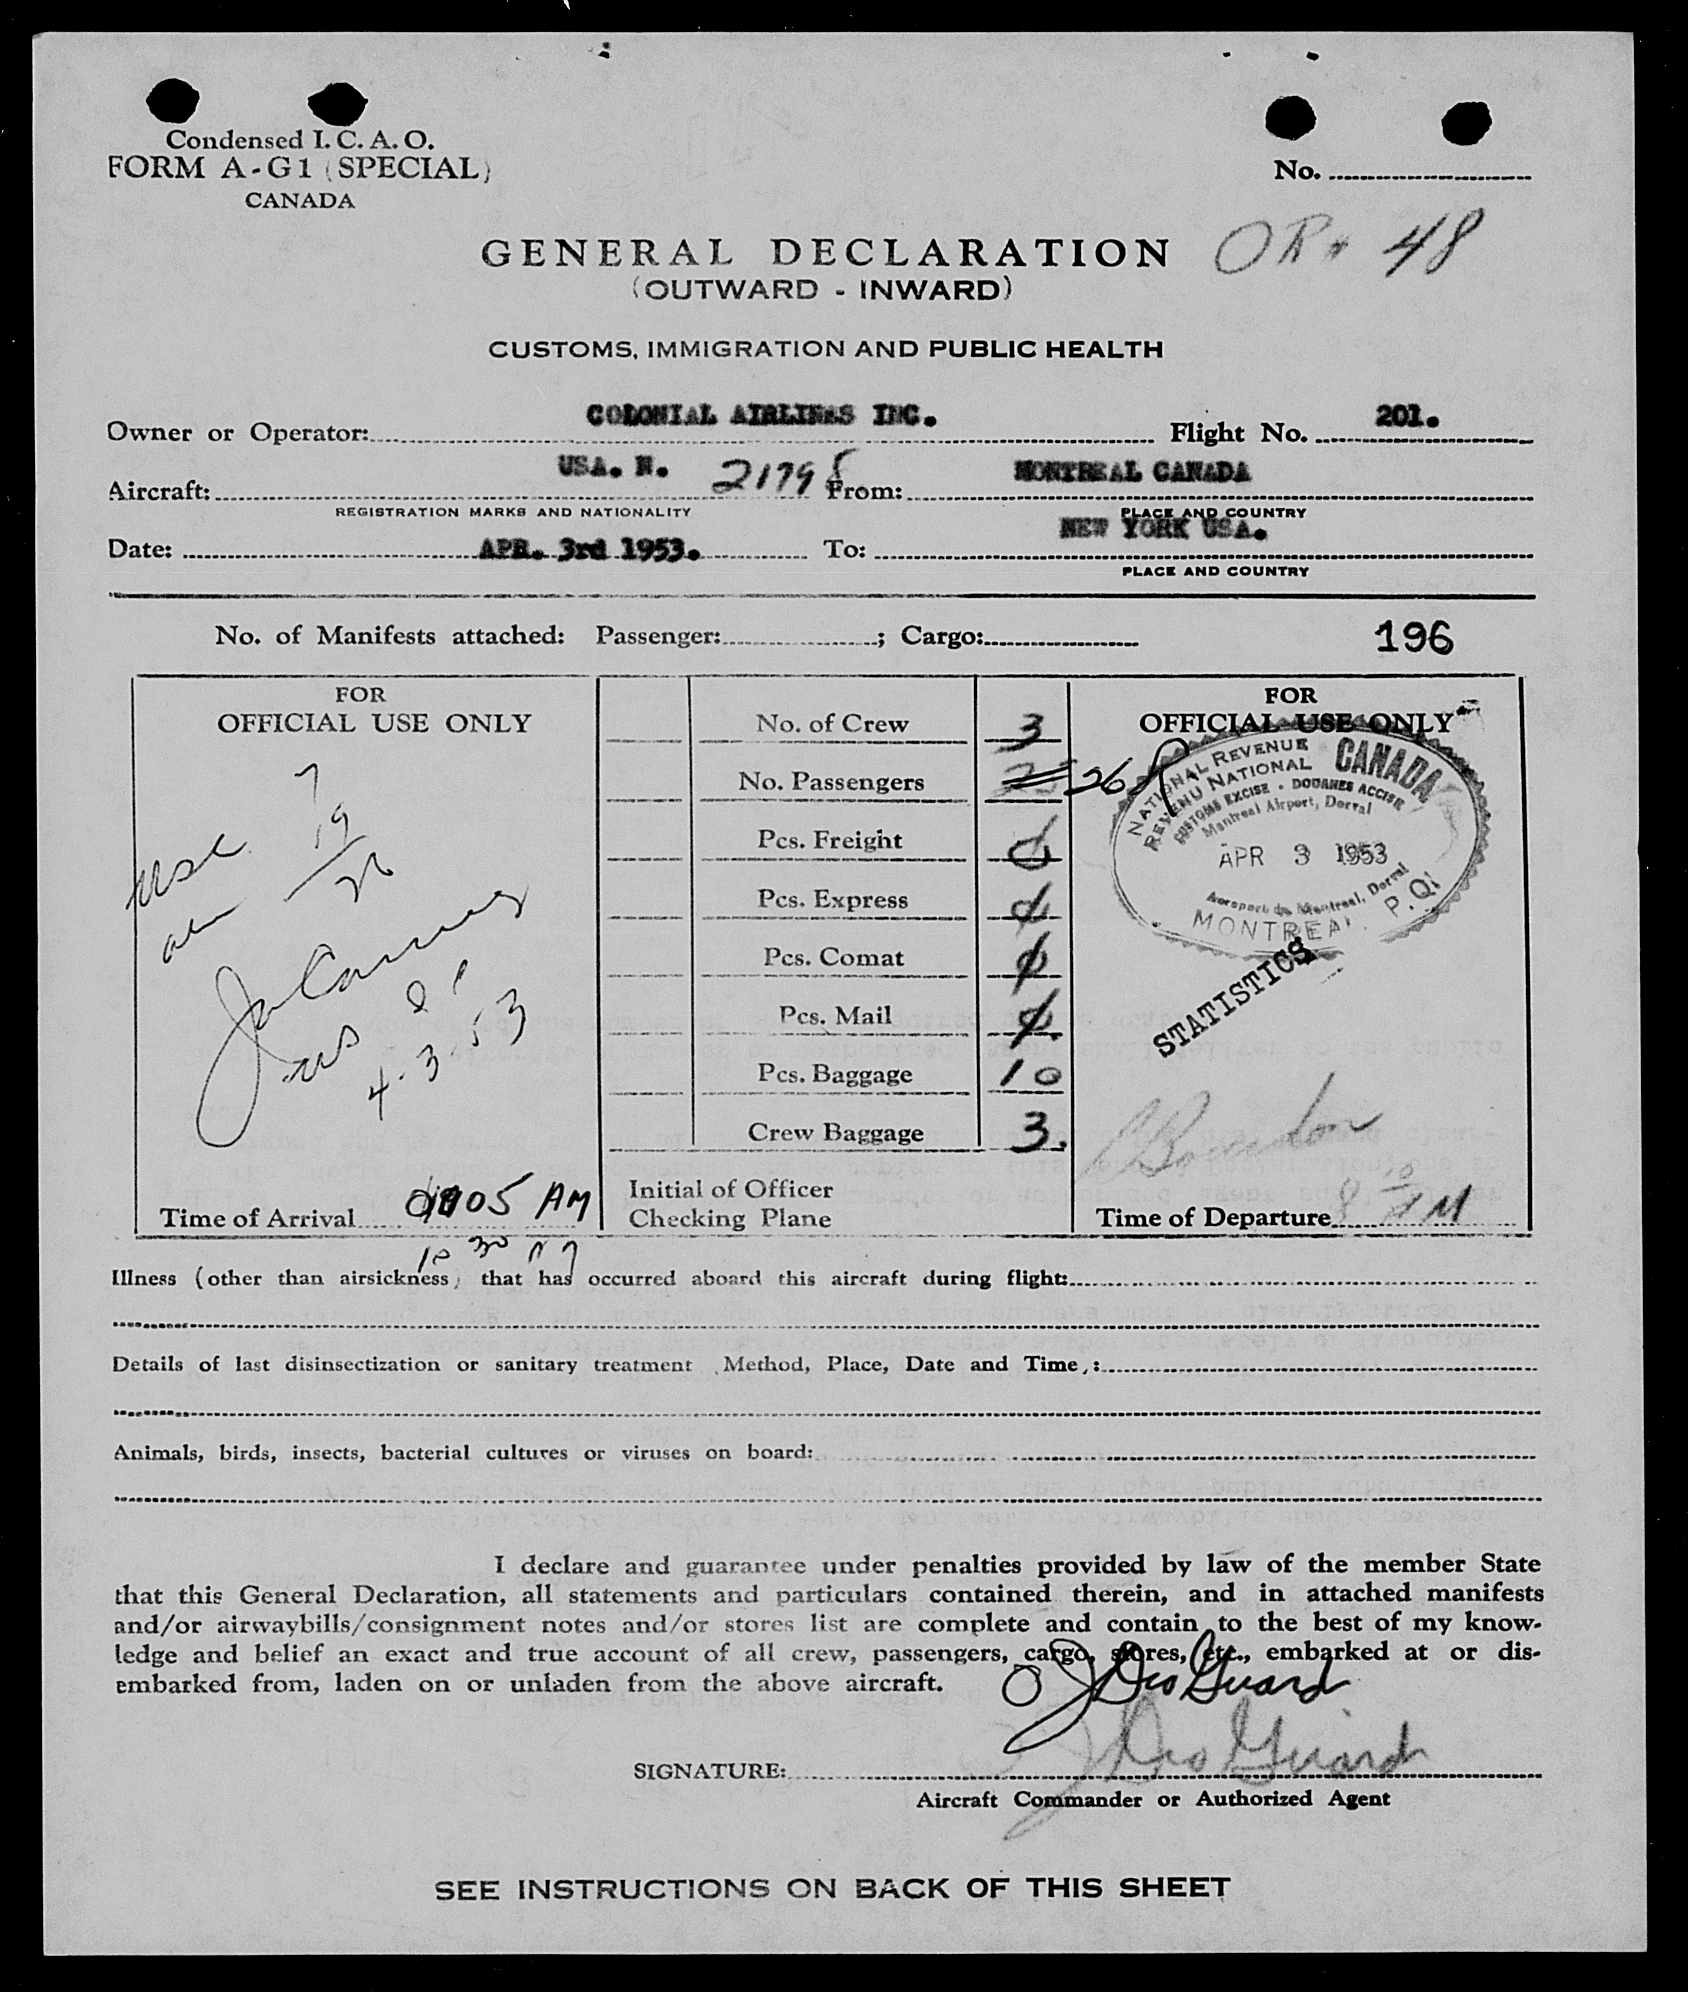 Condensed I. C. A. O.
FORM A-G1 (SPECIAL)
CANADA
No.
OR# 48
GENERAL DECLARATION
(OUTWARD - INWARD)
CUSTOMS, IMMIGRATION AND PUBLIC HEALTH
Owner or Operator: COLONIAL AIRLINES INC. Flight No. 201.
Aircraft: USA. N. 21798 From: MONTREAL CANADA
REGISTRATION MARKS AND NATIONALITY PLACE AND COUNTRY
Date: APR. 3rd 1953. To: NEW YORK USA.
PLACE AND COUNTRY
No. of Manifests attached: Passenger: ; Cargo: 196
FOR
OFFICIAL USE ONLY
7
19
4-3-53
Time of Arrival 05 AM
10 30
No. of Crew 3
No. Passengers 25 26
Pcs. Freight 0
Pcs. Express 0
Pcs. Comat 0
Pcs. Mail 0
Pcs. Baggage 10
Crew Baggage 3.
Initial of Officer
Checking Plane
FOR
OFFICIAL USE ONLY
NATIONAL REVENUE CANADA
REVENU NATIONAL
CUSTOMS EXCISE - DOUANES ACCISE
Montreal Airport, Dorval
APR 3 1953
Aeroport de Montreal, Dorval
MONTREAL P.Q.
STATISTICS
Time of Departure 8 10 AM
Illness (other than airsickness) that has occurred aboard this aircraft during flight:
Details of last disinsectization or sanitary treatment (Method, Place, Date and Time):
Animals, birds, insects, bacterial cultures or viruses on board:
I declare and guarantee under penalties provided by law of the member State
that this General Declaration, all statements and particulars contained therein, and in attached manifests
and/or airwaybills/consignment notes and/or stores list are complete and contain to the best of my know-
ledge and belief an exact and true account of all crew, passengers, cargo, stores, etc., embarked at or dis-
embarked from, laden on or unladen from the above aircraft.
J DioGuard
SIGNATURE: J DioGuard
Aircraft Commander or Authorized Agent
SEE INSTRUCTIONS ON BACK OF THIS SHEET